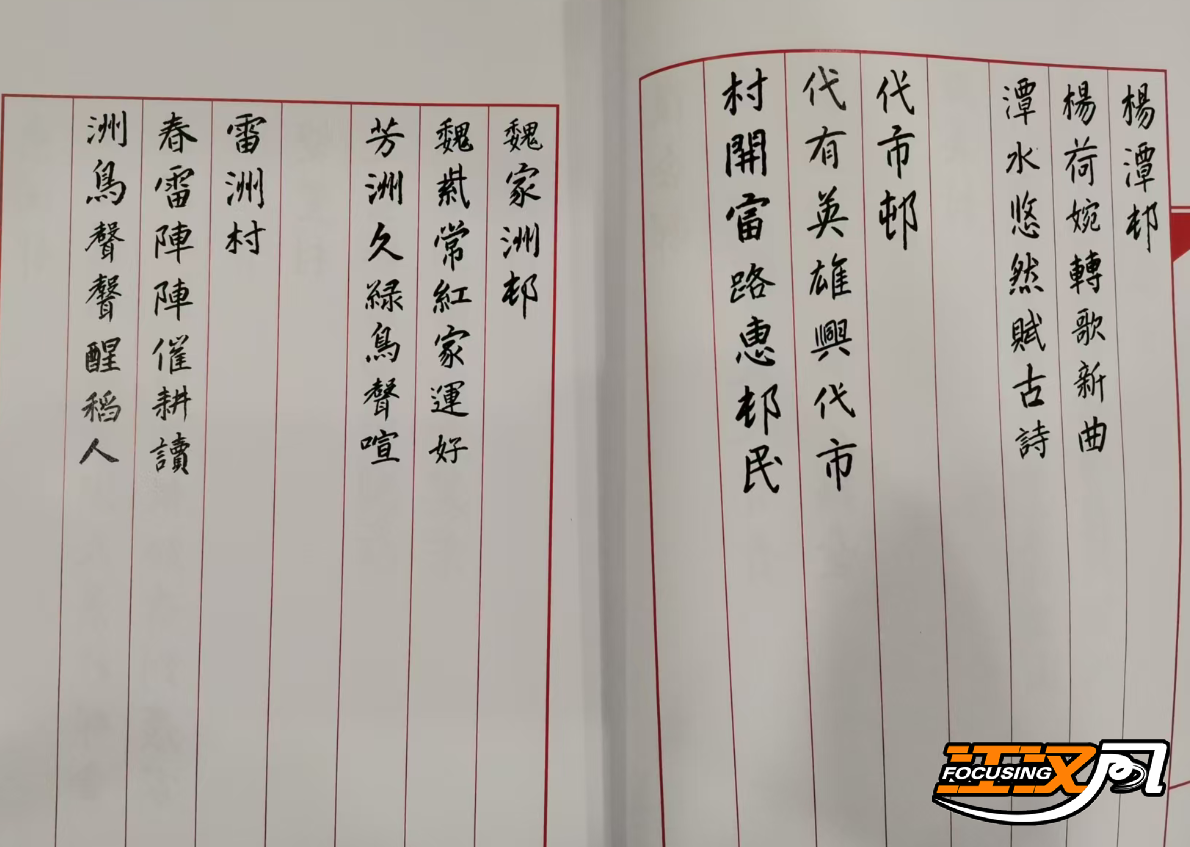 楊潭邨
楊荷婉轉歌新曲
潭水悠然賦古詩
代市邨
代有英雄興代市
村開富路惠邨民
魏家洲邨
魏紫常紅家運好
芳洲久緑鳥聲喧
雷洲村
春雷陣陣催耕讀
洲鳥聲聲醒稻人
江汉风
FOCUSING